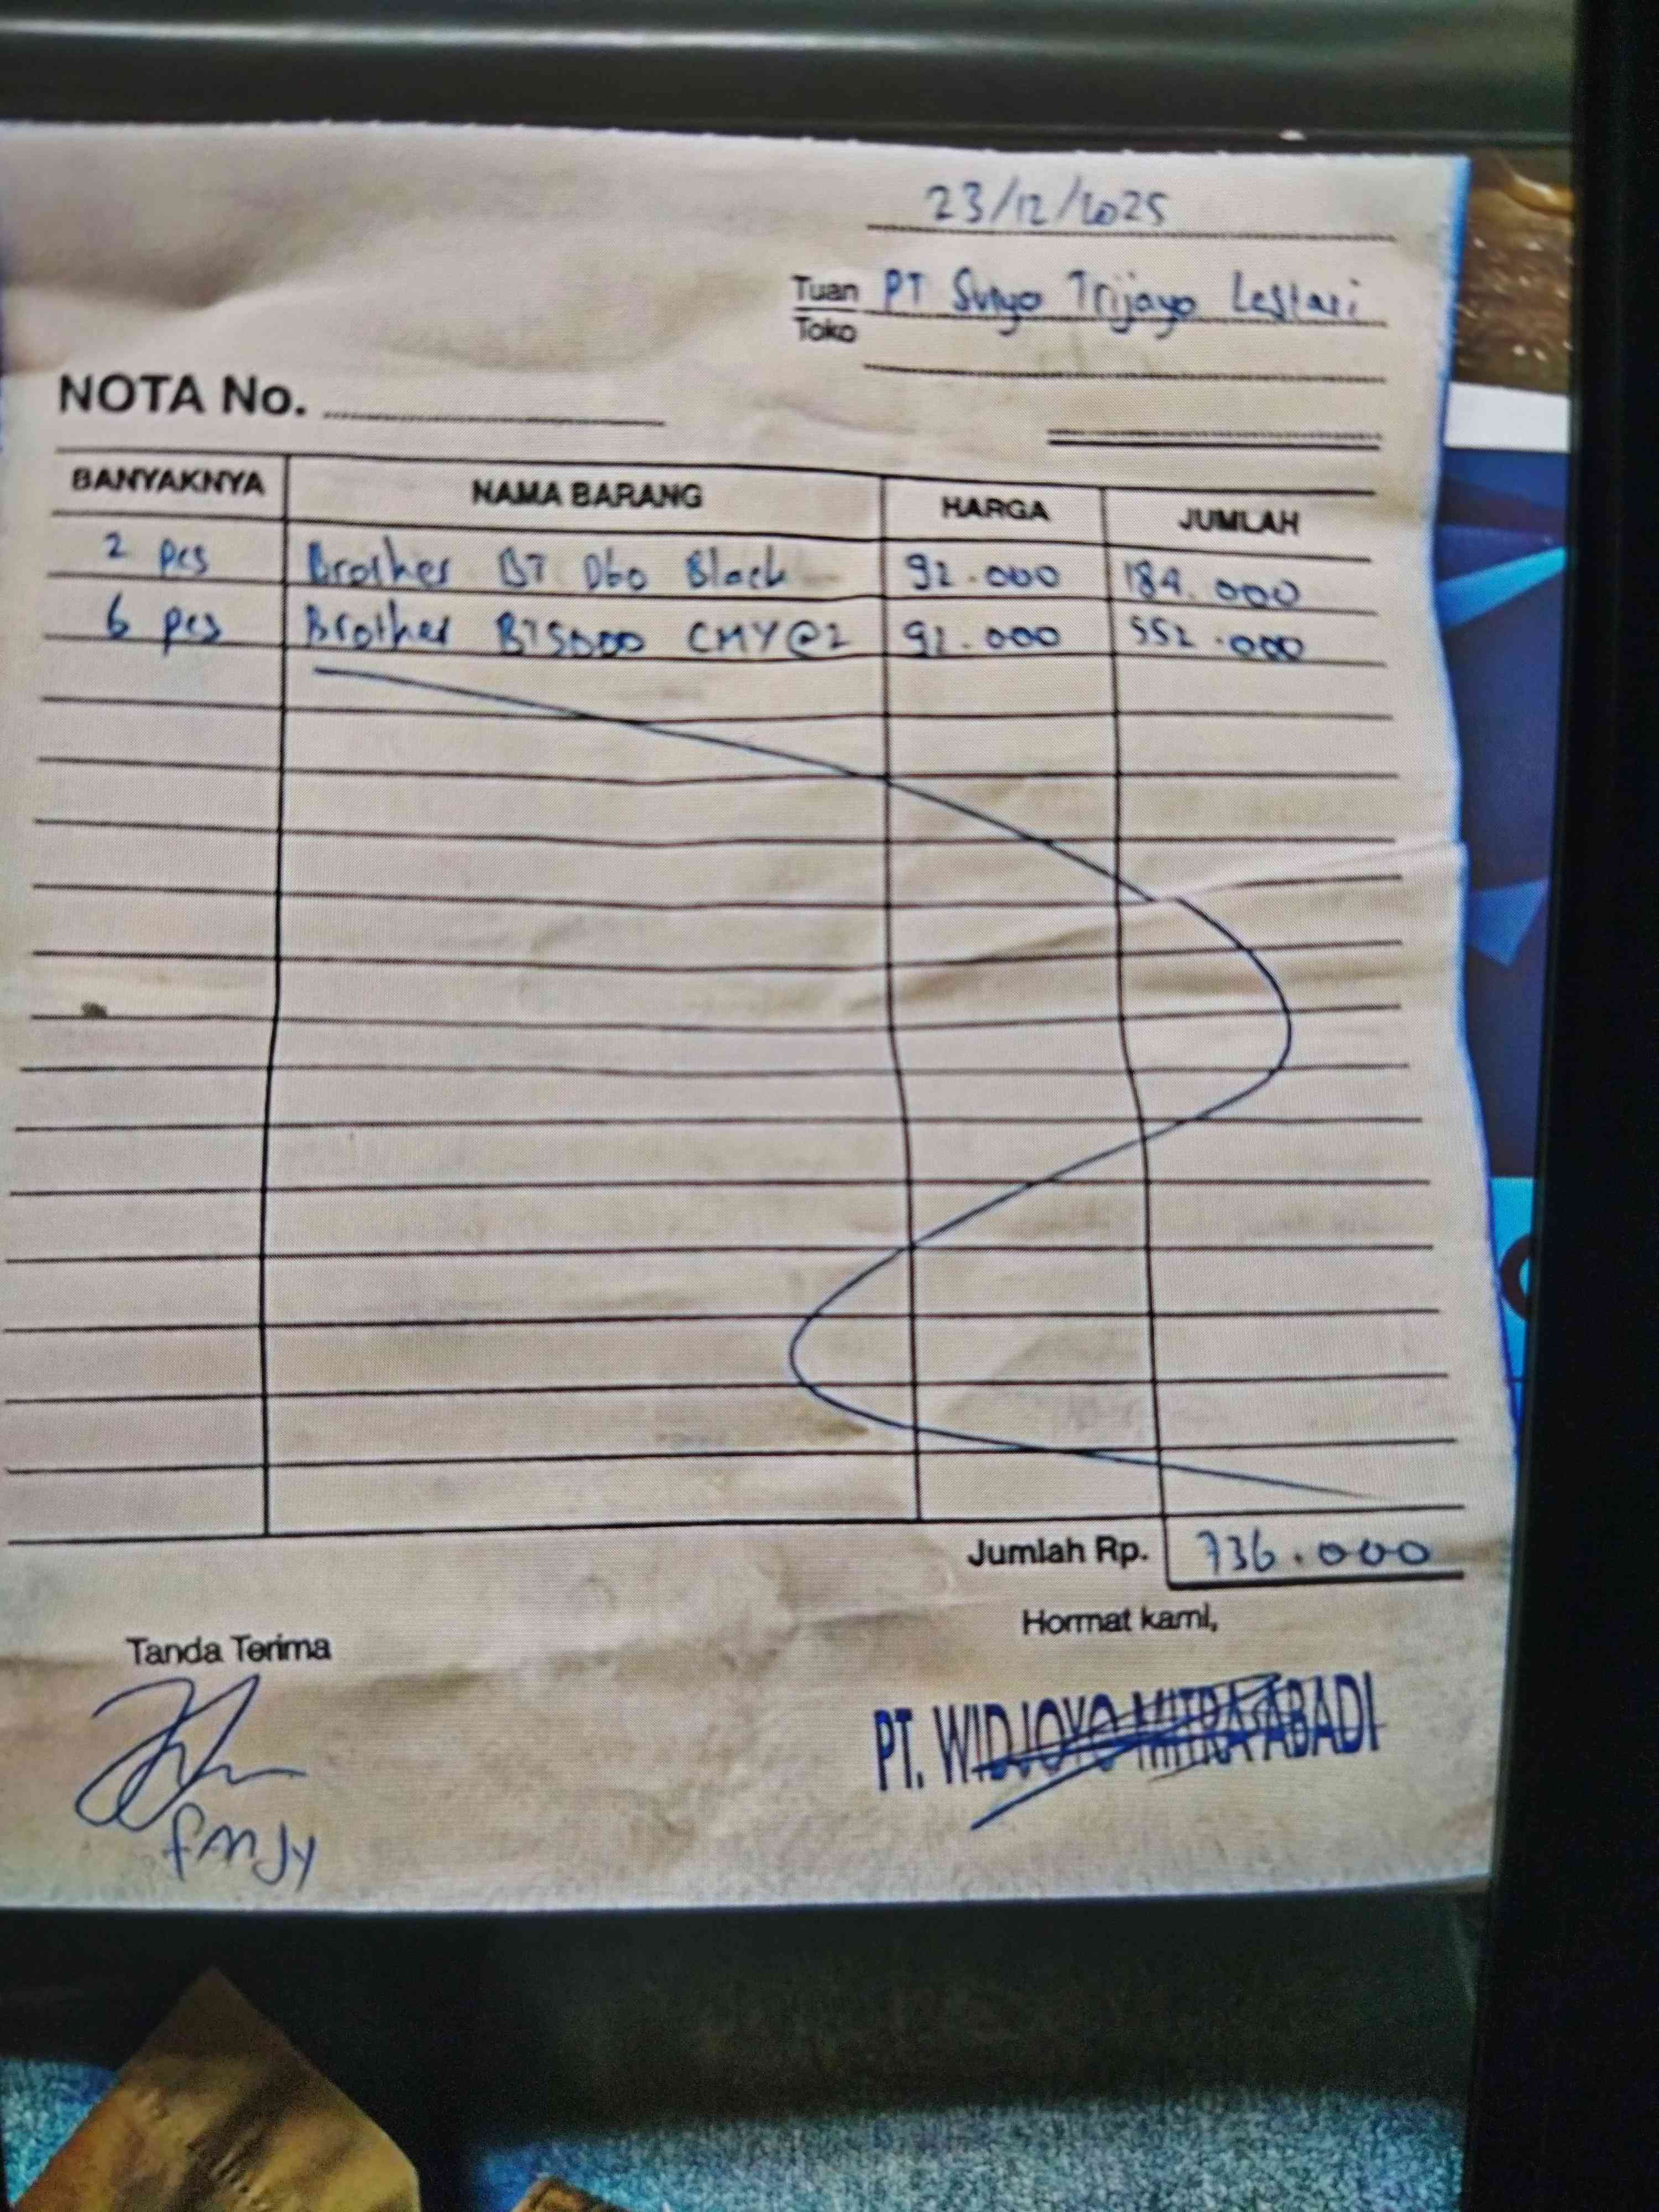 23/12/2025
Tuan PT Suryo Trijayo Lestari
Toko
NOTA No.
BANYAKNYA NAMA BARANG HARGA JUMLAH
2 pcs Brother BT D60 Black 92.000 184.000
6 pcs Brother BT5000 CMY@2 92.000 552.000
Jumlah Rp. 736.000
Hormat kami,
Tanda Terima
PT. WIDJOYO MITRA ABADI